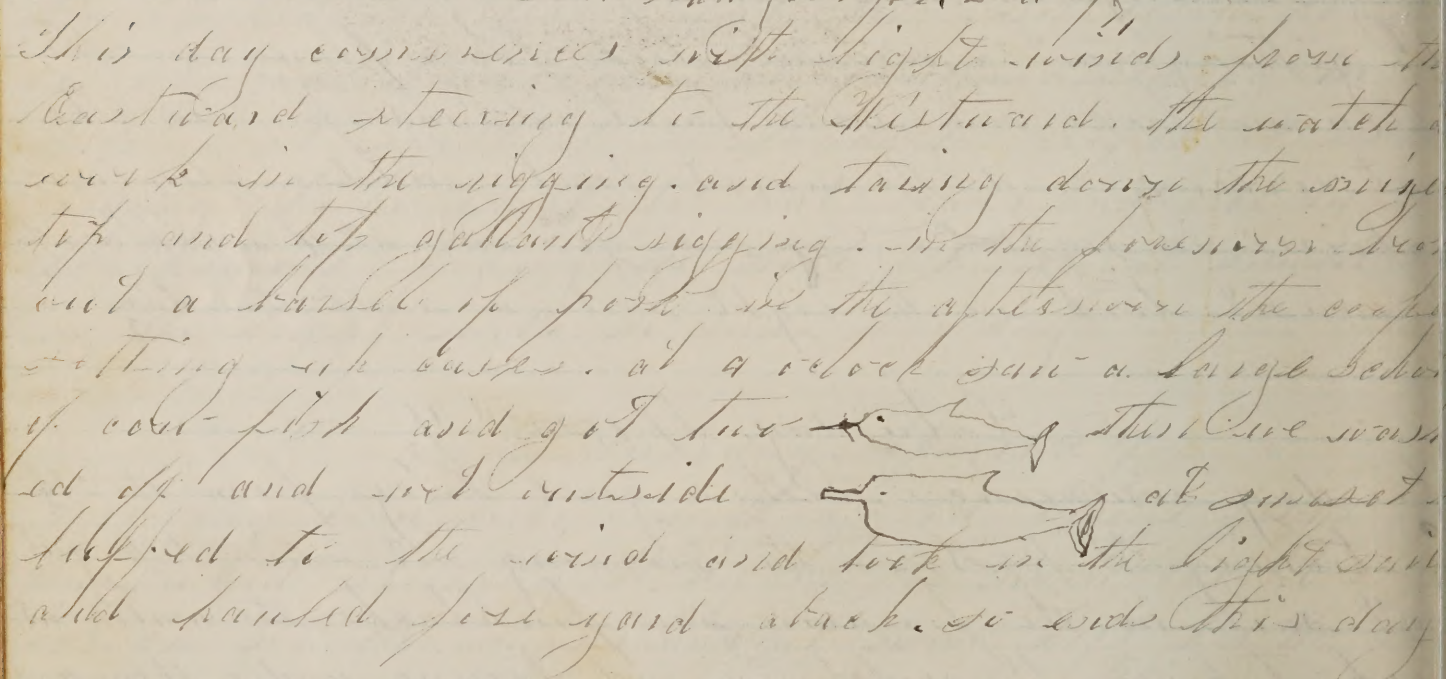 This day commences with light winds from th
Eastward steering to the Westward. the watch a
work in the rigging. and taring down the mize
top and top gallant rigging. in the forenoon bro
out a barrel of pork in the afternoon the coope
setting up casks. at 9 oclock saw a large schoo
of cow fish and got two then we wash
ed off and out side at sunset
luffed to the wind and took in the light sail
and hauled fore yard aback. so ends this day